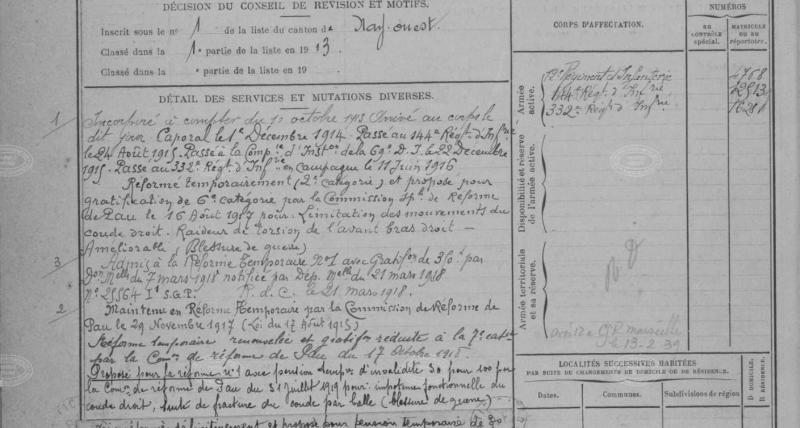 DÉCISION DU CONSEIL DE RÉVISION ET MOTIFS.
Inscrit sous le n° 1 de la liste du canton de Nay-ouest.
Classé dans la 1e partie de la liste en 1913.
Classé dans la partie de la liste en 19
DÉTAIL DES SERVICES ET MUTATIONS DIVERSES.
1 Incorporé à compter du 10 octobre 1913 Arrivé au corps le
dit jour. Caporal le 1er Décembre 1914. Passé au 144e Régt. d'Infrie
le 24 Août 1915. Passé à la Compie d'Inston de la 69e D.I. le 22 Décembre
1915. Passé au 332e Régt. d'Infrie en campagne le 11 Juin 1916.
Réformé temporairement (2e catégorie) et proposé pour
gratification de 6e catégorie par la Commission Sple de Réforme
de Pau le 16 Août 1917 pour: Limitation des mouvements du
coude droit. Raideur de torsion de l'avant bras droit -
Améliorable, (Blessure de guerre)
3 Admis à la Réforme Temporaire N°1 avec Gratifon de 36e par
Don Melle du 7 mars 1918 notifiée par Dép. Melle du 21 mars 1918
N° 25564 Ie S.G.P. R.d.C. le 21 mars 1918.
2 Maintenu en Réforme Temporaire par la Commission de Réforme de
Pau le 29 Novembre 1917 (Loi du 17 Août 1915)
Réforme temporaire renouvelée et gratifon réduite à la 7e catie
par la Comon de réforme de Pau du 17 Octobre 1918
Proposé pour la réforme n°1 avec pension tempre d'invalidité 30 pour 100 par
la Comon de réforme de Pau du 31 juillet 1919 pour: impotence fonctionnelle du
coude droit, suite de fracture du coude par balle (blessure de guerre).
et proposé pour pension temporaire de
CORPS D'AFFECTATION.
NUMÉROS
AU CONTRÔLE spécial.
MATRICULE OU AU répertoire.
Armée active.
12e Régiment d'Infanterie 4768
144e Régt. d'Infrie
332e Régt. d'Infrie
Disponibilité et réserve de l'armée active.
Armée territoriale et sa réserve.
marseille
le 13-2-39
LOCALITÉS SUCCESSIVES HABITÉES
PAR SUITE DE CHANGEMENTS DE DOMICILE OU DE RÉSIDENCE.
Dates.
Communes.
Subdivisions de région
D. DOMICILE.
R. RÉSIDENCE.